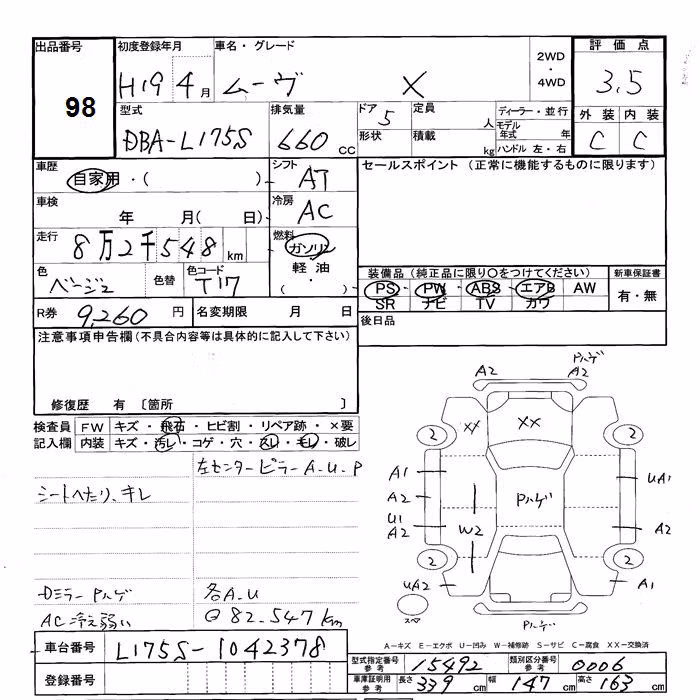 出品番号 初度登録年月 車名・グレード 2WD・4WD 評価点
98 H19 4月 ムーヴ X 3.5
型式 排気量 ドア 定員 人 ディーラー・並行 外装 内装
DBA-L175S 660 cc 5 モデル年式 年 C C
形状 積載 kg ハンドル 左・右
車歴 シフト セールスポイント (正常に機能するものに限ります)
自家用・( ) AT
車検 冷房
年 月( 日) AC
走行 燃料
8万2千548 km ガソリン
色 色替 色コード 軽油
ベージュ T17 ( )
装備品(純正品に限り○をつけてください) 新車保証書
PS PW ABS エアB AW 有・無
SR ナビ TV カワ
R券 9,260 円 名変期限 月 日 後日品
注意事項申告欄(不具合内容等は具体的に記入して下さい)
修復歴 有 〔箇所 〕
検査員 FW キズ・飛石・ヒビ割・リペア跡・×要
記入欄 内装 キズ・汚レ・コゲ・穴・スレ・モレ・破レ
左センターピラーA.U.P
シートヘたり、キレ
Dミラー Pハゲ 各A.U
AC冷え弱い 82.547km
A2 A2 Pハゲ
XX XX
2 2
A1 UA1
A2 Pハゲ
U1
A2 W2 A2
2 2
UA2 A1
スペア Pハゲ
A-キズ E-エクボ U-凹み W-補修跡 S-サビ C-腐食 XX-交換済
車台番号 L175S-1042378
型式指定番号 参考 15492 類別区分番号 参考 0006
登録番号
車庫証明用 参考 長さ 339 cm 幅 147 cm 高さ 163 cm